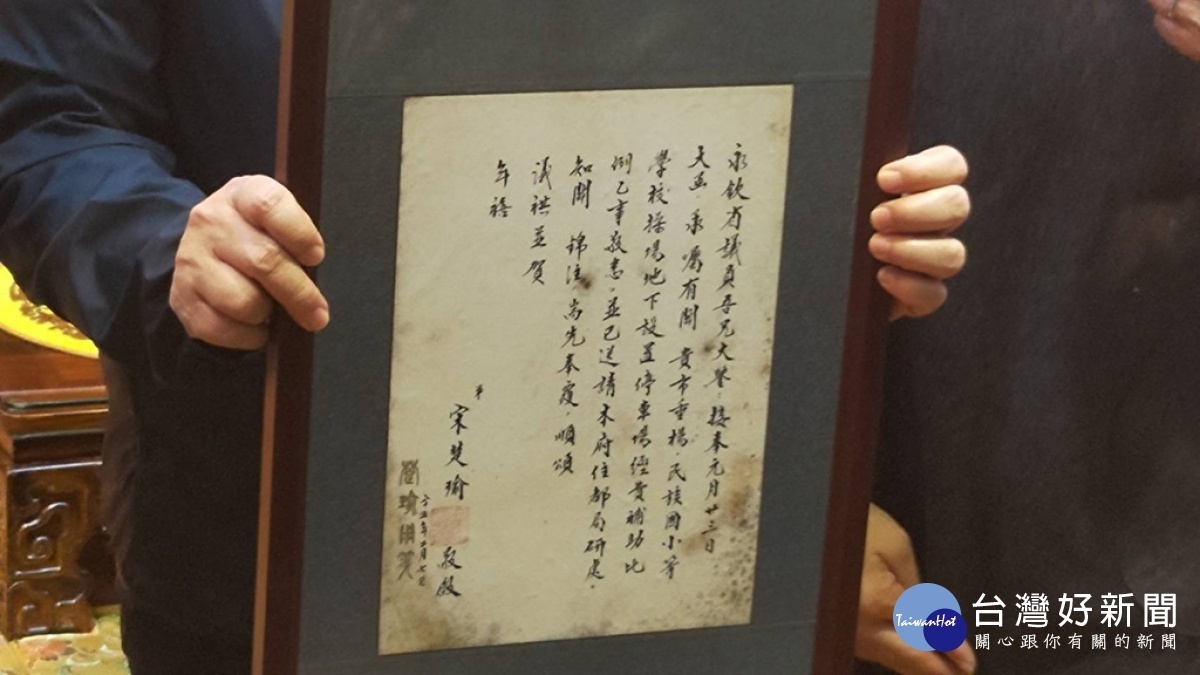 永欽省議員吾兄大鑒：接奉元月廿三日
大函，承囑有關 貴市重楊、民族國小等
學校操場地下設置停車場經費補助比
例乙事敬悉，並已送請本府住都局研處。
知關 錦注，尚先奉覆，順頌
議祺並賀
年禧
弟 宋楚瑜 敬啟
二月七日
台灣好新聞
TaiwanHot
關心跟你有關的新聞